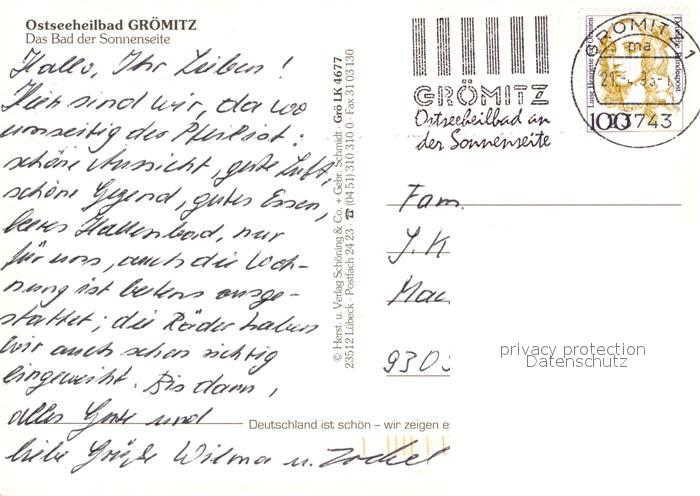 Ostseeheilbad GRÖMITZ
Das Bad der Sonnenseite
Hallo, Ihr Lieben!
Hier sind wir, da wo
umseitig der Pfeil ist:
schöne Aussicht, gute Luft,
schöne Gegend, gutes Essen,
leeres Hallenbad, nur
für uns, auch die Woh-
nung ist bestens ausge-
stattet; die Räder haben
wir auch schon richtig
eingeweiht. Bis dann,
alles Gute und
liebe Grüße Wilma u.
© Herst. u. Verlag Schöning & Co. + Gebr. Schmidt · Grö LK 4677
23512 Lübeck · Postfach 24 23 · ☎ (04 51) 310 310 0 · Fax 31 03 130
Deutschland ist schön – wir zeigen es
GRÖMITZ
Ostseeheilbad an
der Sonnenseite
GRÖMITZ 1
23743
Deutsche Bundespost
100
Fam.
J. K
Mac
930
privacy protection
Datenschutz